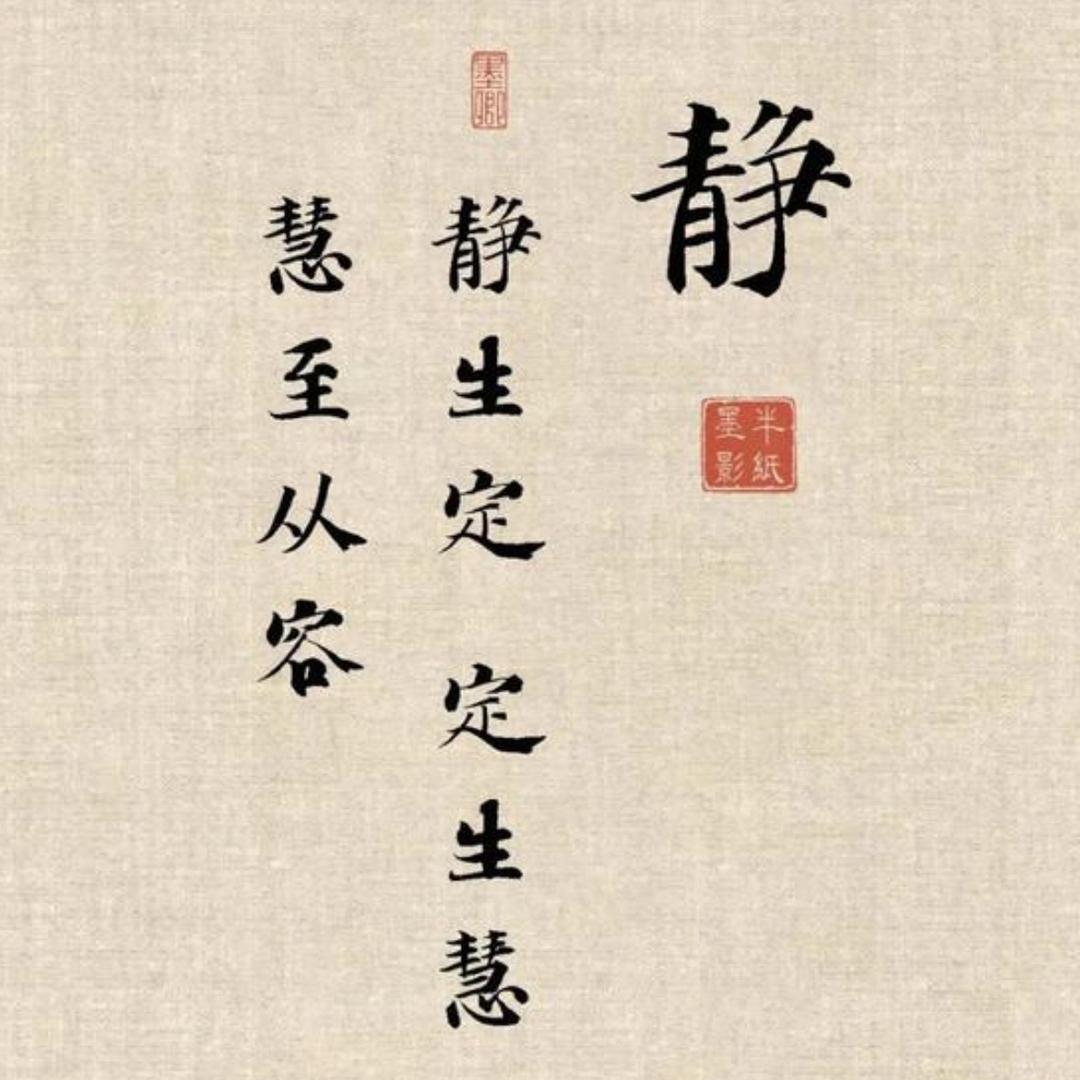 静
半紙
墨影
墨卿
静生定 定生慧
慧至从容